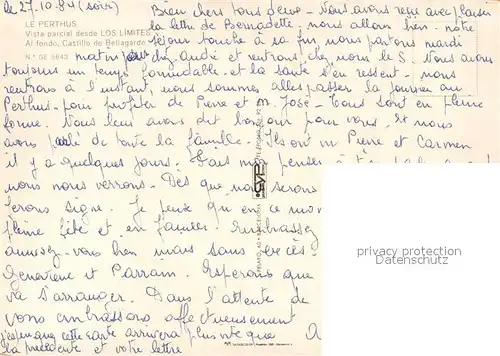 le 27.10.84 (soir)
LE PERTHUS
Vista parcial desde LOS LIMITES
Al fondo, Castillo de Bellagarde
N.º GE 5643
Bien chers tous deux - Nous avons reçu avec plaisir
la lettre de Bernadette. nous allons bien - notre
séjour touche à sa fin nous partons mardi
matin chez André et rentrons chez nous le 5. Nous avons
toujours un temps formidable - et la santé s'en ressent - nous
rentrons à l'instant, nous sommes allés passer la journée au
Perthus - pour profiter de Pierre et M. José - Tous sont en pleine
forme. Nous leur avons dit bonjour pour vous. Et nous
avons parlé de toute la famille. Ils ont vu Pierre et Carmen
il y a quelques jours.
nous nous verrons - Dès que nous serons
ferons signe. Je pense qu'en ce mo
pleine fête et en famille. Embrassez
amusez-vous bien mais sans excès.
Geneviève et Parrain. Espérons que
va s'arranger. Dans l'attente de
vous embrassons affectueusement
j'espère que cette carte arrivera plus vite que
la précédente et votre lettre
privacy protection
datenschutz